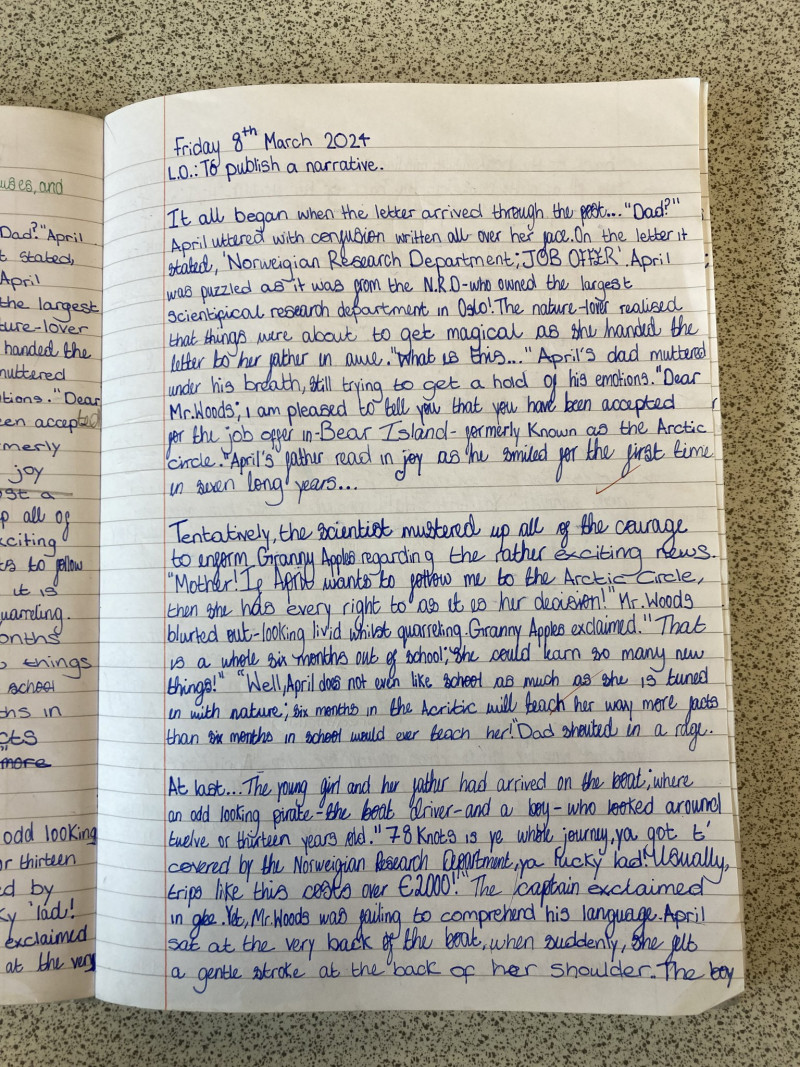 uses, and
Dad?" April
t stated,
April
the largest
ture-lover
handed the
muttered
tions. "Dear
en accepted
merly
joy
ost a
p all of
xciting
ts to follow
it is
uarreling.
onths
things
school
ths in
cts
more
odd looking
or thirteen
ed by
ky 'lad!
exclaimed
at the very
Friday 8th March 2024
L.O.: To publish a narrative.
It all began when the letter arrived through the post... "Dad?"
April uttered with confusion written all over her face. On the letter it
stated, 'Norweigian Research Department; JOB OFFER'. April
was puzzled as it was from the N.R.D - who owned the largest
scientifical research department in Oslo! The nature-lover realised
that things were about to get magical as she handed the
letter to her father in awe. "What is this..." April's dad muttered
under his breath, still trying to get a hold of his emotions. "Dear
Mr. Woods; I am pleased to tell you that you have been accepted
for the job offer in - Bear Island - formerly known as the Arctic
circle." April's father read in joy as he smiled for the first time
in seven long years...
Tentatively, the scientist mustered up all of the courage
to enform Granny Apples regarding the rather exciting news.
"Mother! If April wants to follow me to the Arctic Circle,
then she has every right to as it is her decision!" Mr. Woods
blurted out - looking livid whilst quarreling. Granny Apples exclaimed. "That
is a whole six months out of school; she could learn so many new
things!" "Well, April does not even like school as much as she is tuned
in with nature; six months in the Acritic will teach her way more facts
than six months in school would ever teach her!" Dad shouted in a rage.
At last... The young girl and her father had arrived on the boat; where
an odd looking pirate - the boat driver - and a boy - who looked around
twelve or thirteen years old. "78 Knots is ye whole journey, ya got t'
covered by the Norweigian Research Department, ya lucky 'lad! Usually,
trips like this costs over €2000!" The captain exclaimed
in glee. Yet, Mr. Woods was failing to comprehend his language. April
sat at the very back of the boat, when suddenly, she felt
a gentle stroke at the back of her shoulder. The boy